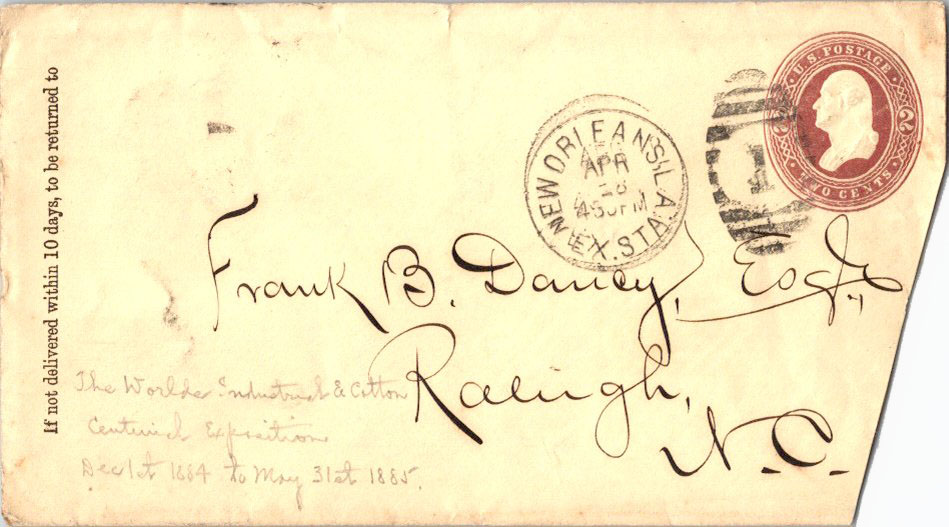 If not delivered within 10 days, to be returned to
U.S. POSTAGE
2 2
TWO CENTS
NEW ORLEANS, LA.
APR
28
EX. STA.
1
Frank B. Dancy, Esq.,
Raleigh,
N.C.
The Worlds Industrial & Cotton
Centinial Exposition
Dec 1st 1884 to May 31st 1885.